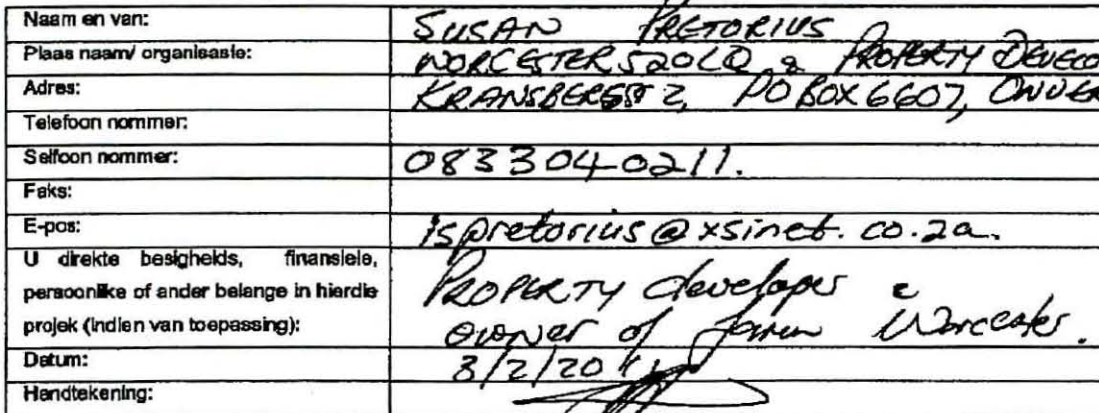 Naam en van: SUSAN PRETORIUS
Plaas naam/ organisasie: WORCESTER 520LQ & PROPERTY DEVELO
Adres: KRANSBERGSTR 2, PO BOX 6607, ONVER
Telefoon nommer:
Selfoon nommer: 083 304 0211.
Faks:
E-pos: ispretorius@xsinet.co.za.
U direkte besigheids, finansiele,
persoonlike of ander belange in hierdie
projek (indien van toepassing):
PROPERTY developer &
owner of farm Worcester.
Datum: 3/2/2011
Handtekening: